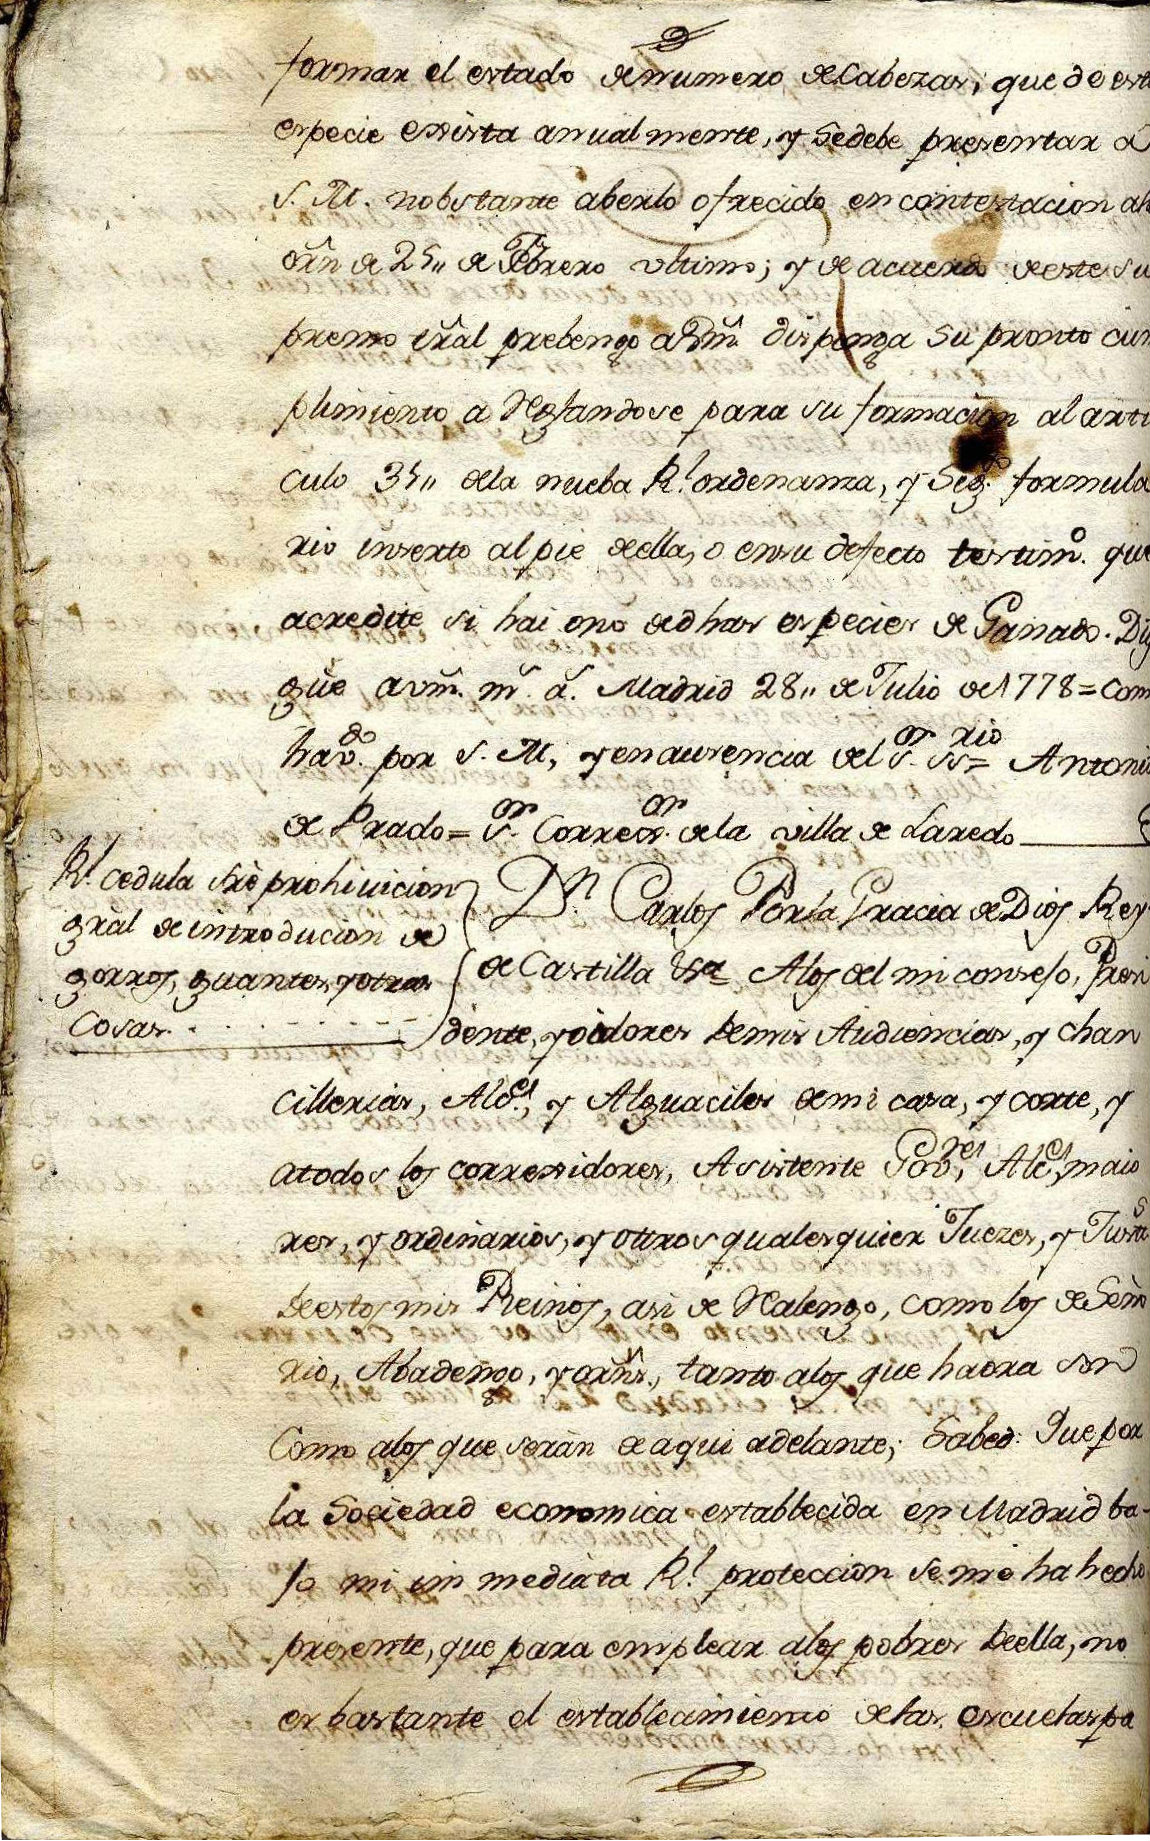 formar el estado de numero de Cabezas, que de esta
especie existta anualmente, y se debe presentar a
S. M. nobstante aberlo ofrecido en contestacion ah
orn̄ de 25,, de Febrero ultimo; y de acuerdo de este su
premo trāl prebengo a Vm̄. disponga su pronto cum
plimiento arreglandose para su formacion al arti
culo 35,, dela nueba Rl. ordenanza, y Segdo. formula
rio inserto al pie de ella, o en su defecto testimo. que
acredite si hai ono de dhas especies de Ganado. Dios
güe avm̄. ms. as. Madrid 28,, de Julio de 1778 = Com
havdo. por S. M, y en ausencia del Sor. Ssrio = Antonio
de Prado = Sor. Correor. dela villa de Laredo
Rl. cedula sre prohivicion
gral de introducion de
gorros, guantes, y otras
Cosas.
Dn. Carlos Por la Gracia de Dios Rey
de Castilla &a = Alos del mi consejo, Presi
dente, y oidores de mis Audiencias, y chan
cillerias, Alces., y Alguaciles de mi casa, y corte, y
atodos los correxidores, Asistente Govres, Alces, maio
res, y ordinarios, y ottros qualesquier Juezes, y Justas
de estos mis Reinos, asi de Realengo, como los de Seño
rio, Abadengo, y orns., tanto alos que haora son
Como alos que serán de aqui adelante; Sabed: Que por
la Sociedad economica establecida en Madrid ba-
jo mi inmediata Rl. proteccion se me ha hecho
presente, que para emplear alos pobres de ella, no
es bastante el establecimiento de las escuelas pa